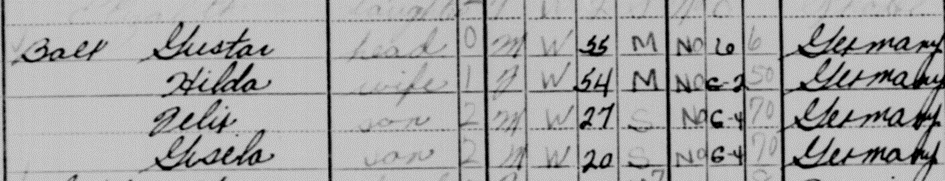 Ball Gustav head 0 M W 55 M No 6 6 Germany
Hilda wife 1 F W 54 M No 6-2 50 Germany
Felix son 2 M W 27 S No 6-4 70 Germany
Gisela son 2 M W 20 S No 6-4 70 Germany